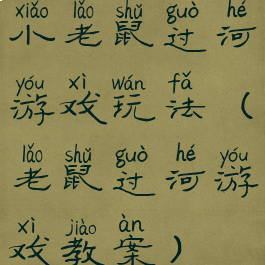 xiǎo lǎo shǔ guò hé
小老鼠过河
yóu xì wán fǎ
游戏玩法(
lǎo shǔ guò hé yóu
老鼠过河游
xì jiào àn
戏教案)